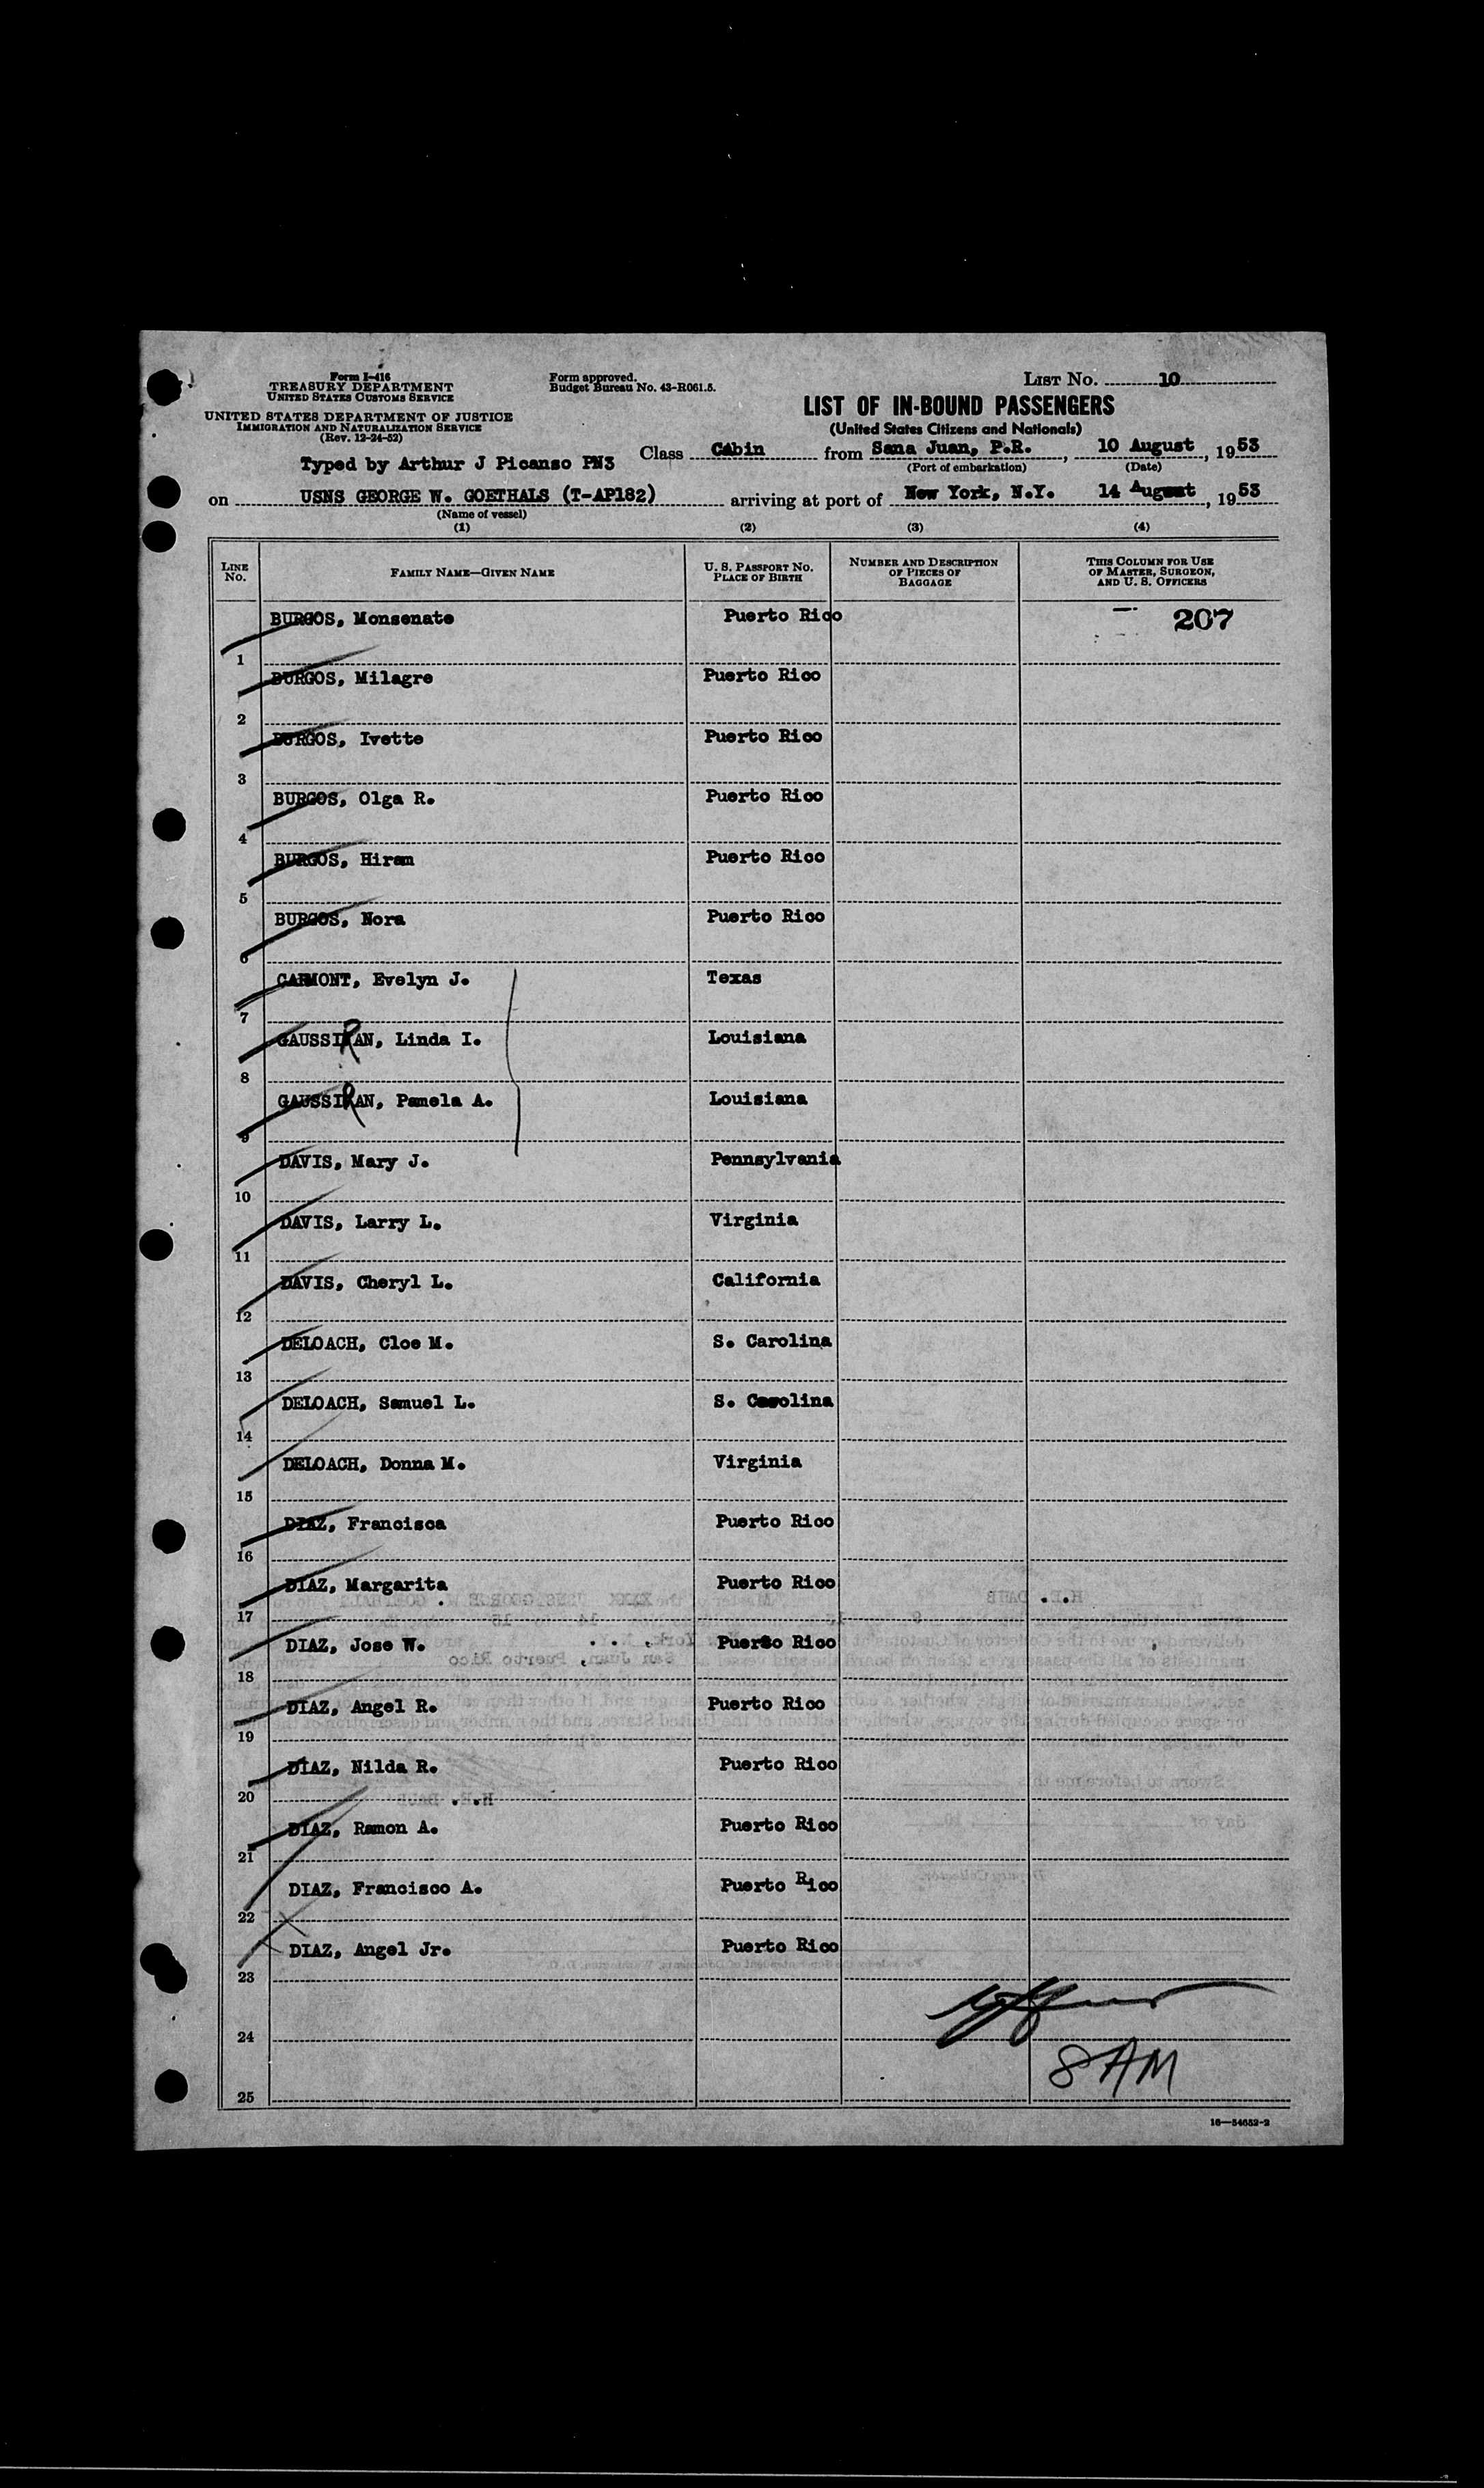 Form I-416
TREASURY DEPARTMENT
UNITED STATES CUSTOMS SERVICE
UNITED STATES DEPARTMENT OF JUSTICE
IMMIGRATION AND NATURALIZATION SERVICE
(Rev. 12-24-52)
Form approved.
Budget Bureau No. 43-R061.5.
LIST NO. 10
LIST OF IN-BOUND PASSENGERS
(United States Citizens and Nationals)
Typed by Arthur J Picanso PN3
Class Cabin from Sana Juan, P.R., 10 August, 1953
(Port of embarkation) (Date)
on USNS GEORGE W. GOETHALS (T-AP182) arriving at port of New York, N.Y. 14 August, 1953
(Name of vessel)
(1) (2) (3) (4)
LINE NO. FAMILY NAME—GIVEN NAME U. S. PASSPORT NO. PLACE OF BIRTH NUMBER AND DESCRIPTION OF PIECES OF BAGGAGE THIS COLUMN FOR USE OF MASTER, SURGEON, AND U. S. OFFICERS
1 BURGOS, Monsenate Puerto Rico 207
2 BURGOS, Milagre Puerto Rico
3 BURGOS, Ivette Puerto Rico
4 BURGOS, Olga R. Puerto Rico
5 BURGOS, Hiram Puerto Rico
6 BURGOS, Nora Puerto Rico
7 CARMONT, Evelyn J. Texas
8 GAUSSIRAN, Linda I. Louisiana
9 GAUSSIRAN, Pamela A. Louisiana
10 DAVIS, Mary J. Pennsylvania
11 DAVIS, Larry L. Virginia
12 DAVIS, Cheryl L. California
13 DELOACH, Cloe M. S. Carolina
14 DELOACH, Samuel L. S. Carolina
15 DELOACH, Donna M. Virginia
16 DIAZ, Francisca Puerto Rico
17 DIAZ, Margarita Puerto Rico
18 DIAZ, Jose W. Puerto Rico
19 DIAZ, Angel R. Puerto Rico
20 DIAZ, Nilda R. Puerto Rico
21 DIAZ, Ramon A. Puerto Rico
22 DIAZ, Francisco A. Puerto Rico
23 DIAZ, Angel Jr. Puerto Rico
24
25
8 AM
16—54652-2